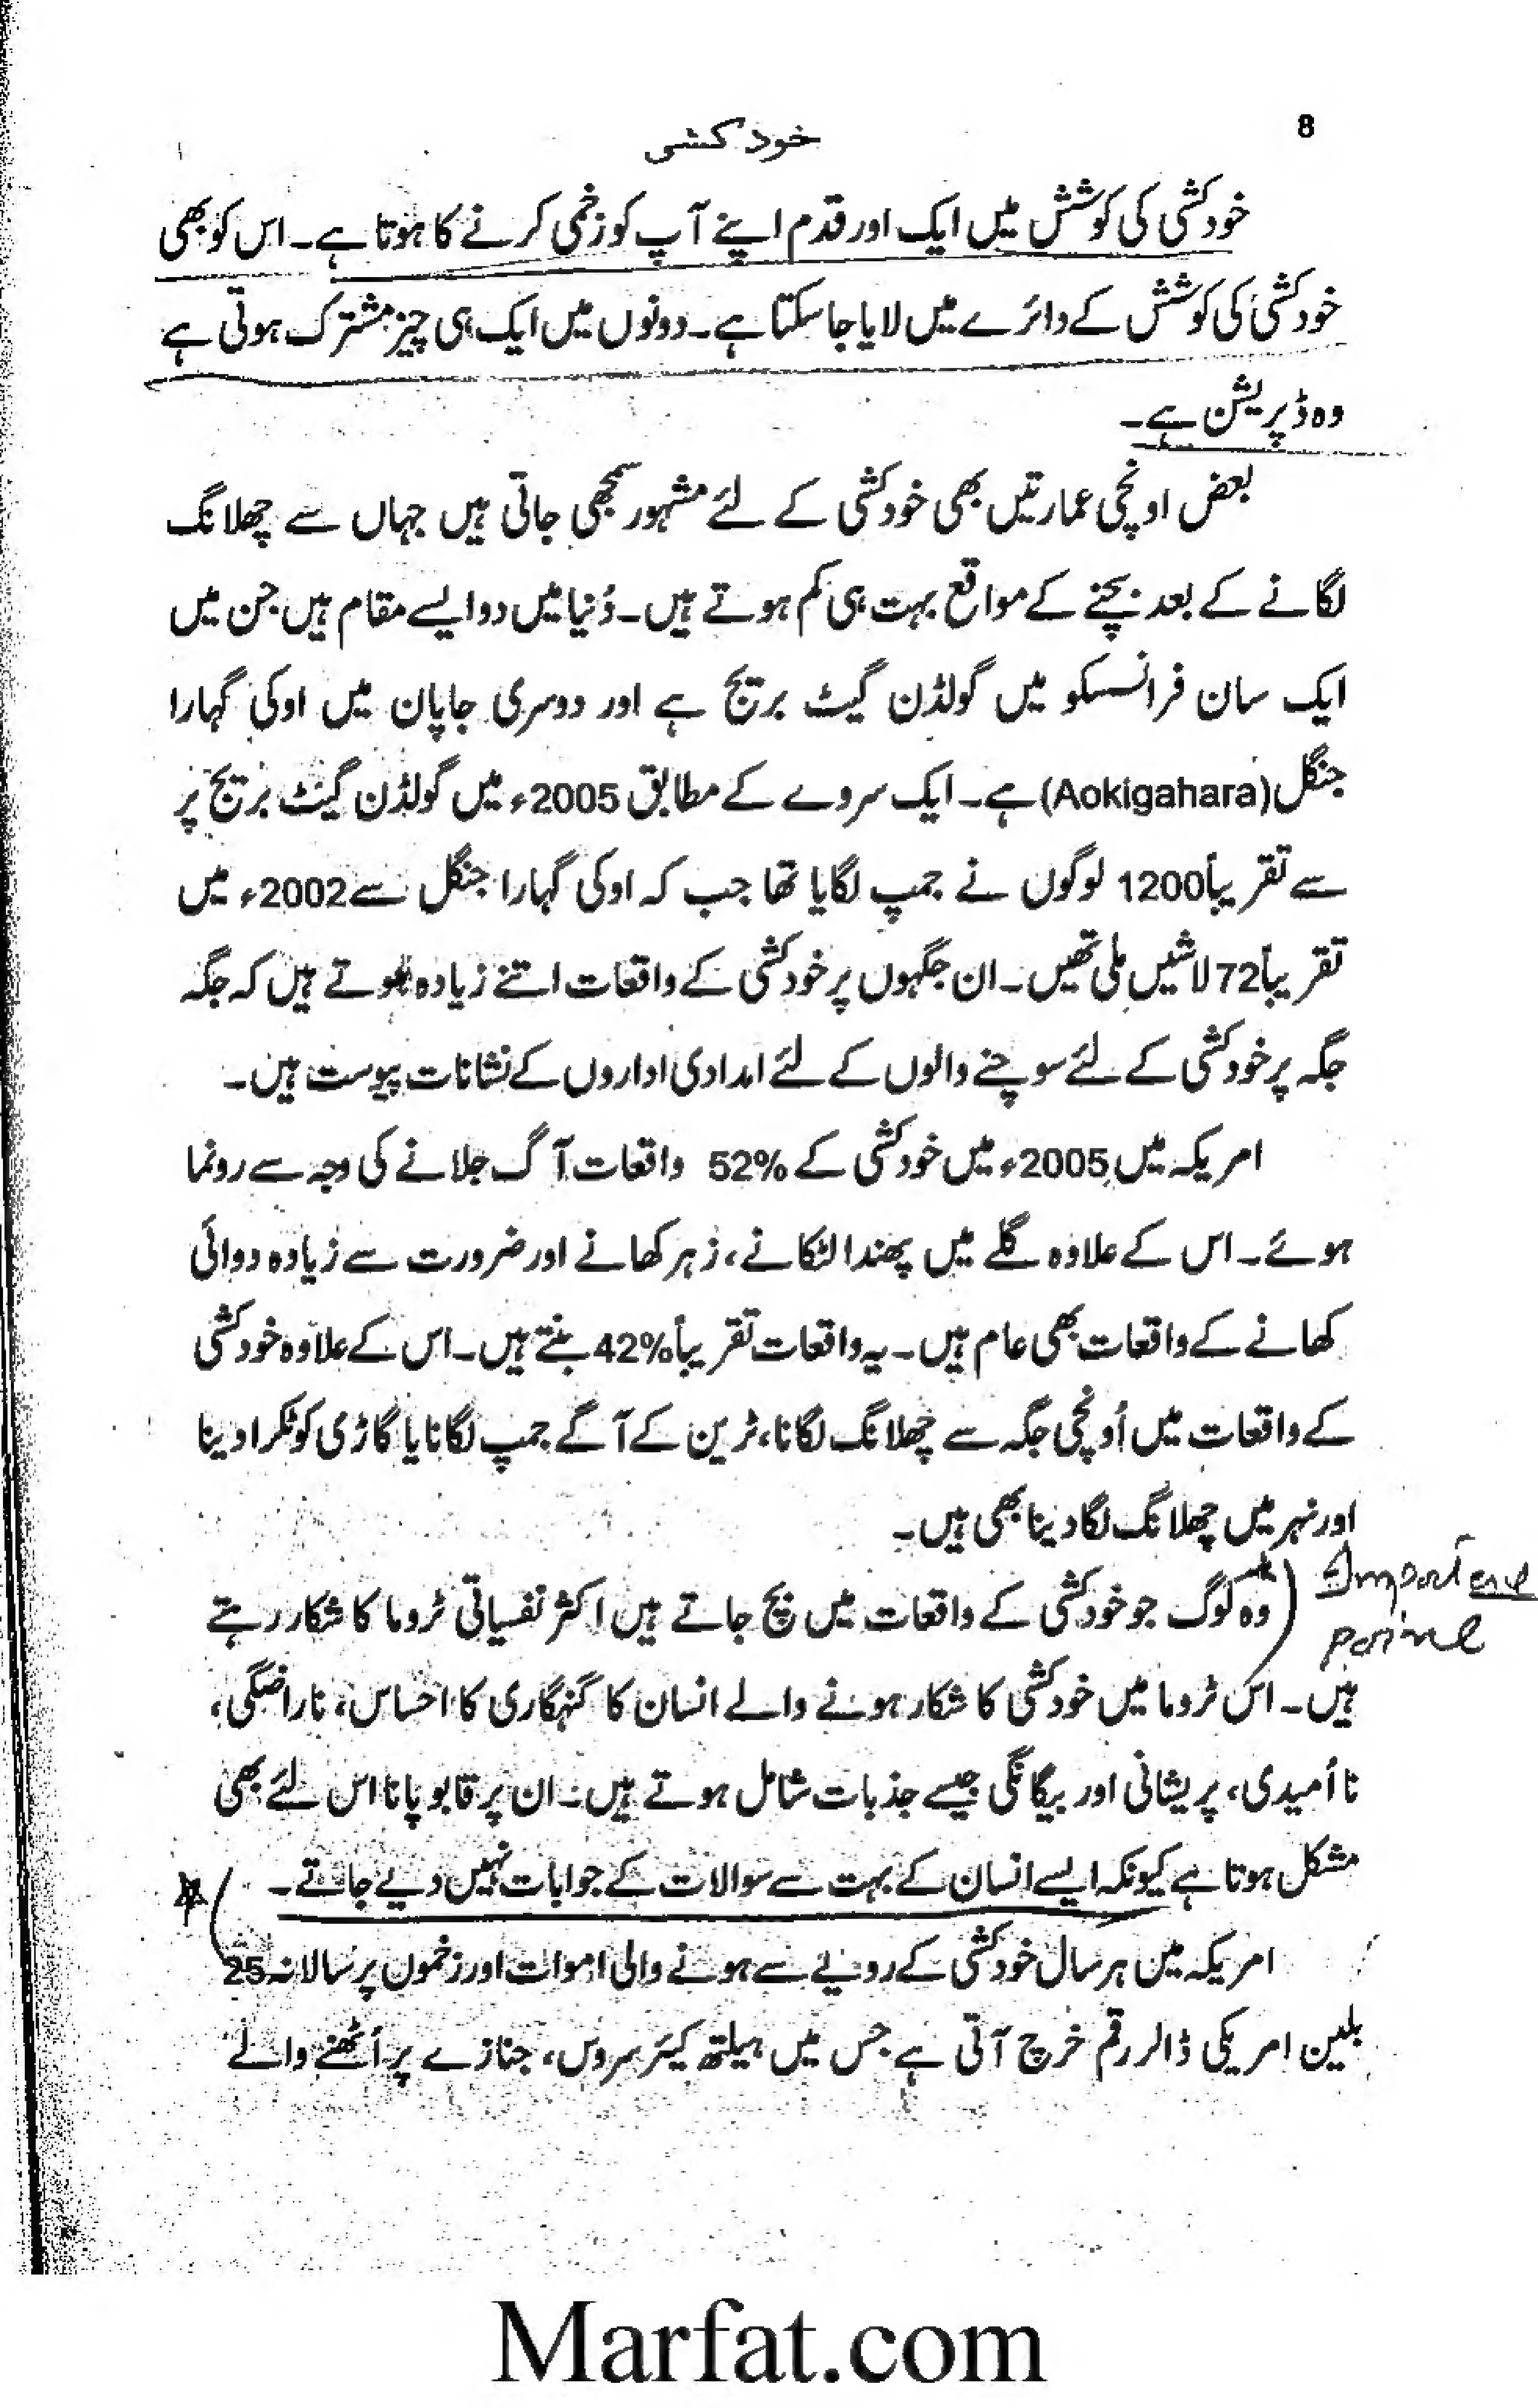 8
خودکشی
خودکشی کی کوشش میں ایک اور قدم اپنے آپ کو زخمی کرنے کا ہوتا ہے۔ اس کو بھی
خودکشی کی کوشش کے دائرے میں لایا جا سکتا ہے۔ دونوں میں ایک ہی چیز مشترک ہوتی ہے
وہ ڈپریشن ہے۔
بعض اونچی عمارتیں بھی خودکشی کے لئے مشہور سمجھی جاتی ہیں جہاں سے چھلانگ
لگانے کے بعد بچنے کے مواقع بہت ہی کم ہوتے ہیں۔ دُنیا میں دو ایسے مقام ہیں جن میں
ایک سان فرانسسکو میں گولڈن گیٹ بریج ہے اور دوسری جاپان میں اوکی گہارا
جنگل (Aokigahara) ہے۔ ایک سروے کے مطابق 2005ء میں گولڈن گیٹ بریج پر
سے تقریباً 1200 لوگوں نے جمپ لگایا تھا جب کہ اوکی گہارا جنگل سے 2002ء میں
تقریباً 72 لاشیں ملی تھیں۔ ان جگہوں پر خودکشی کے واقعات اتنے زیادہ ہوتے ہیں کہ جگہ
جگہ پر خودکشی کے لئے سوچنے والوں کے لئے امدادی اداروں کے نشانات پیوست ہیں۔
امریکہ میں 2005ء میں خودکشی کے 52% واقعات آگ جلانے کی وجہ سے رونما
ہوئے۔ اس کے علاوہ گلے میں پھندا لٹکانے، زہر کھانے اور ضرورت سے زیادہ دوائی
کھانے کے واقعات بھی عام ہیں۔ یہ واقعات تقریباً 42% بنتے ہیں۔ اس کے علاوہ خودکشی
کے واقعات میں اُونچی جگہ سے چھلانگ لگانا، ٹرین کے آگے جمپ لگانا یا گاڑی کو ٹکرا دینا
اور نہر میں چھلانگ لگا دینا بھی ہیں۔
وہ لوگ جو خودکشی کے واقعات میں بچ جاتے ہیں اکثر نفسیاتی ٹروما کا شکار رہتے
ہیں۔ اس ٹروما میں خودکشی کا شکار ہونے والے انسان کا گنہگاری کا احساس، ناراضگی،
نا اُمیدی، پریشانی اور بیگانگی جیسے جذبات شامل ہوتے ہیں۔ ان پر قابو پانا اس لئے بھی
مشکل ہوتا ہے کیونکہ ایسے انسان کے بہت سے سوالات کے جوابات نہیں دیے جاتے۔
امریکہ میں ہر سال خودکشی کے رویے سے ہونے والی اموات اور زخموں پر سالانہ 25
بلین امریکی ڈالر رقم خرچ آتی ہے جس میں ہیلتھ کیئر سروس، جنازے پر اُٹھنے والے
Marfat.com